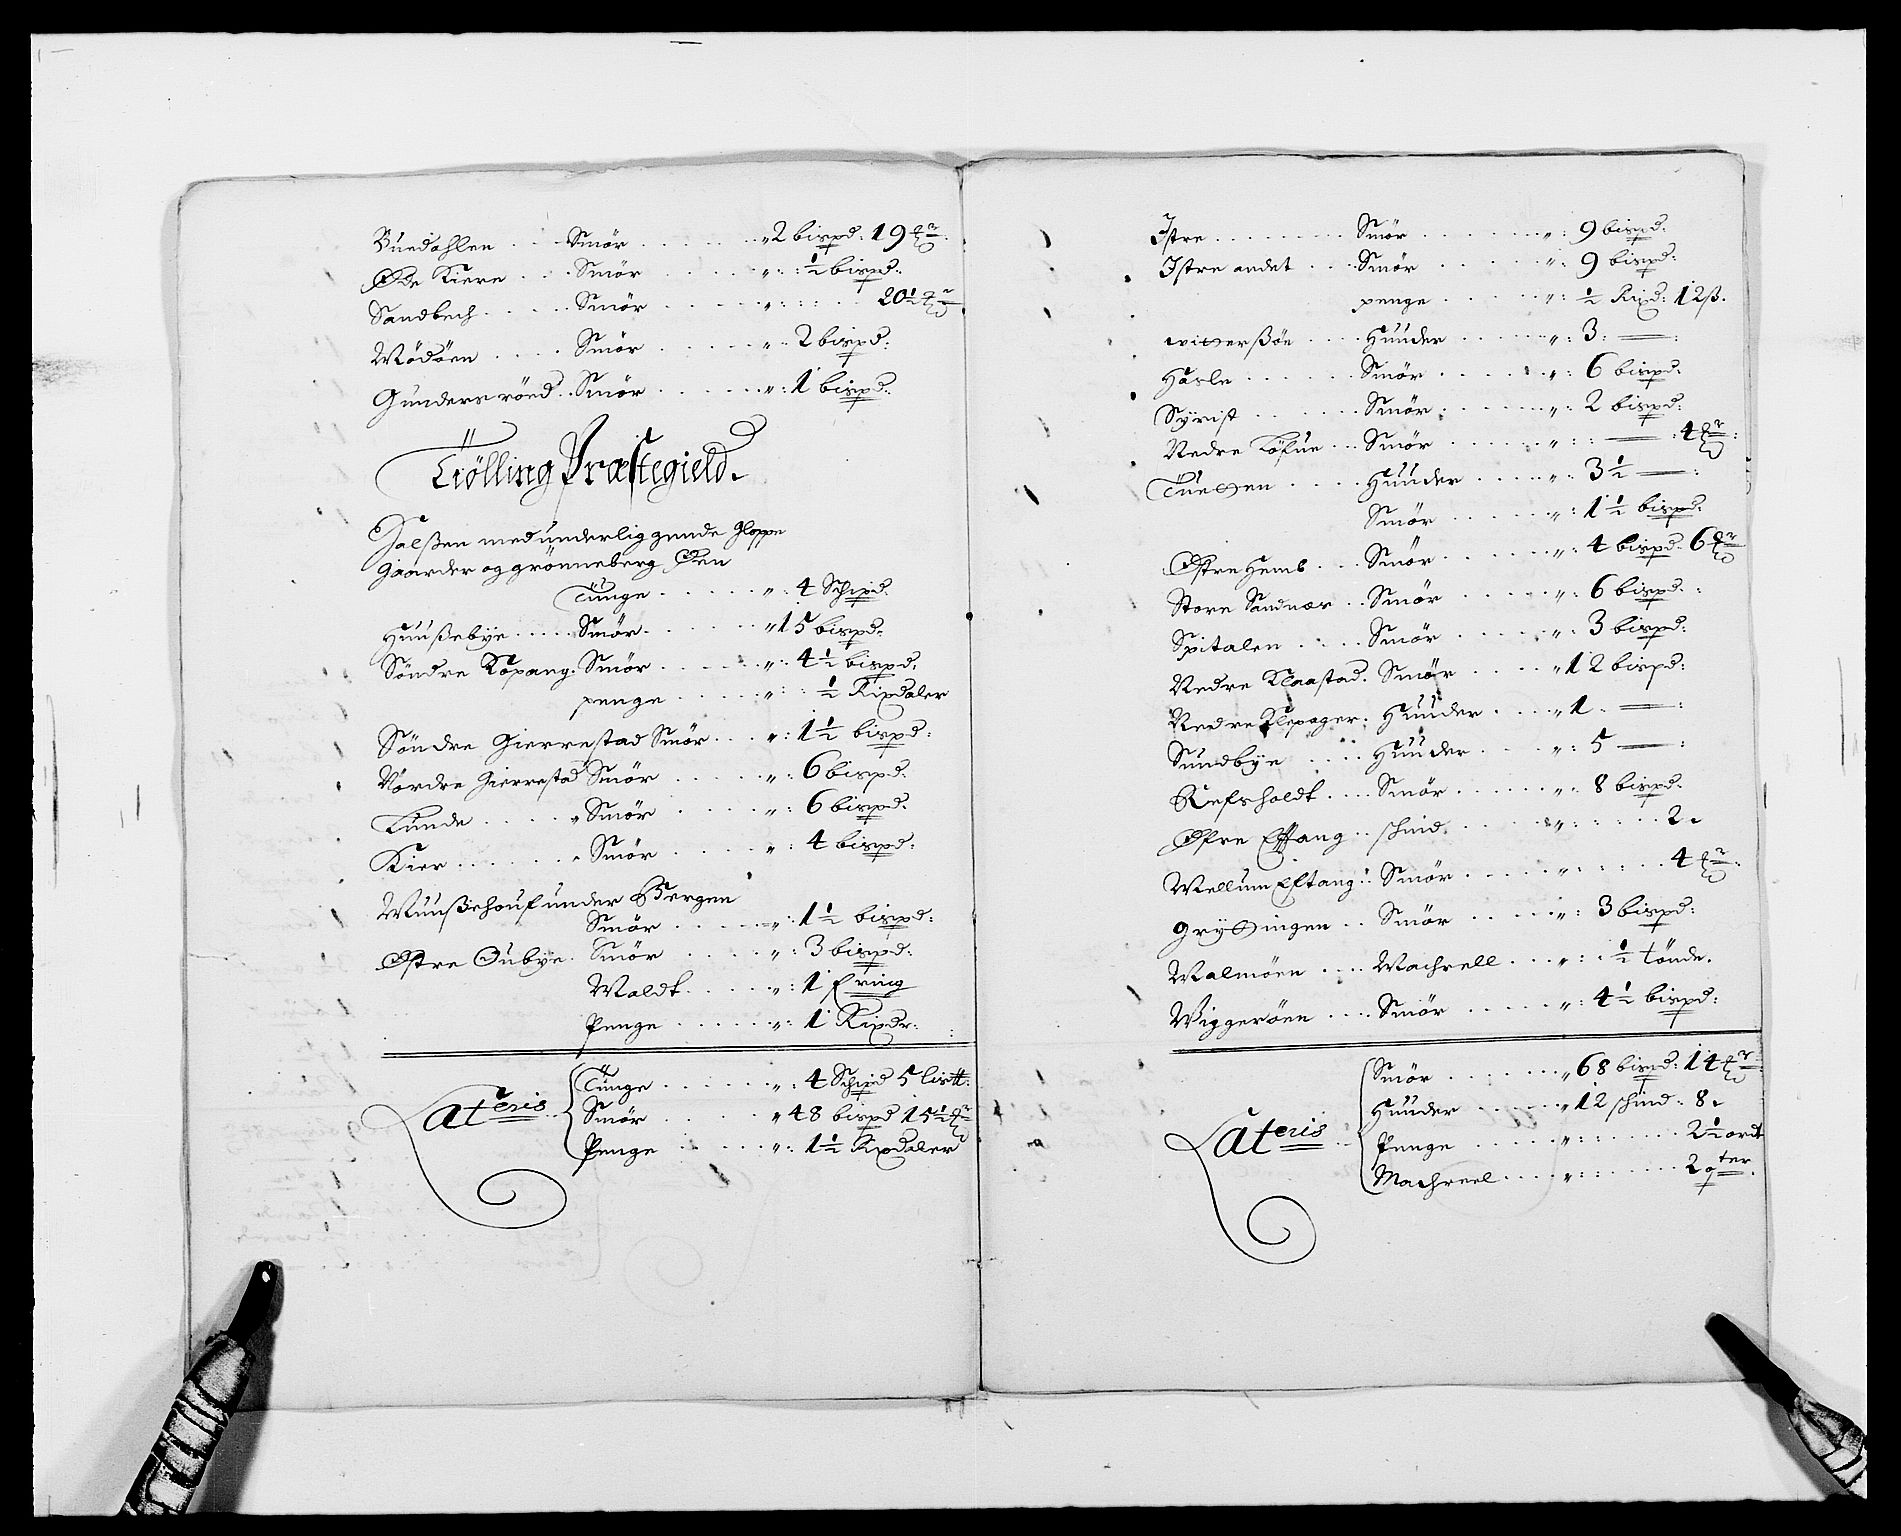 Buedahlen . . . Smör . . . . . . „ 2 bispd: 19
Øde Kiere . . . Smör . . . . . „ : : ½ bispd:
Sandbech . . . . . Smör . . . . . „ : : : : 20½
Mödöen . . . . Smör . . . . . „ : 2 bispd:
Gunders röed . . Smör . . . . . „ : 1 bispd:
Tiölling Præstegield.
Jalßen med underliggende Gloppe
Gaarder og grönneberg Øen
Tünge . . . . . „ : 4 Schipd.
Huußebÿe . . . . . Smör . . . . . „ 15 bispd:
Söndre Kopang: Smör . . . . . „ : 4½ bispd:
penge . . . . . „ : : ½ Rixdaler
Söndre Gierrestad Smör . . . „ : 1½ bispd:
Nordre Gierrestad Smör . . . . . „ : 6 bispd:
Lunde . . . . „ Smör . . . . „ : 6 bispd:
Kier . . . . . . „ Smör . . . . „ : 4 bispd:
Muußehouf under Bergen
Smör . . . . „ : 1½ bispd:
Østre Oubÿe . Smör . . . . „ : 3 bispd:
Maldt . . . . . „ : 1
Penge . . . . . . „ : 1 Rixdr:
Lateris
Tünge . . . . . . „ : 4 Schipd 5 lis
Smör . . . . . „ 48 bispd 15½
Penge . . . . . „ : 1½ Rixdaler
Istre . . . . . . . . Smör . . . . . . „ : 9 bispd:
Istre andet . . . Smör . . . . . „ : 9 bispd:
penge . . . . . „ : ½ Rixd: 12 ß.
Huuder . . . . . „ : 3 : — :
Hasle . . . . . . Smör . . . . . „ : 6 bispd:
Sÿrist . . . . . . Smör . . . . . „ : 2 bispd:
Nedre Föfue . . Smör . . . . . „ : : — : 4
Tuetten . . . . . Huuder . . . . „ : 3½ — :
Smör . . . . . „ : 1½ bispd:
Østre Hemb . . . Smör . . . . . „ : 4 bispd. 6
Store Sandnær . . Smör . . . . . „ : 6 bispd. :
Spitalen . . . . Smör . . . . . „ : 3 bispd:
Nedre Klaastad . Smör . . . . „ 12 bispd:
Nedre Klepager : Huuder . . . . „ 1 . — :
Sundbÿe . . . . Huuder . . . . „ : 5 — :
Refsholdt . . . . Smör . . . . . . „ : 8 bispd:
Øfre Eftang . . schind . . . . . „ : . . . . . 2.
Mellum Eftang : Smör . . . . . „ . . . . . 4
Gryttingen . . Smör . . . . . „ : 3 bispd:
Malmöen . . . . Machrell . . . „ : . ½ tönde.
Wiggeröen . . . . Smör . . . . . „ : 4½ bispd:
Lateris
Smör . . . . . . „ 68 bispd: 14
Huuder . . . . . „ 12 schind : 8.
Penge . . . . . . „ : . . . . . 2½ ordt
Machreel . . . . „ : : . . . . . 2 qter.